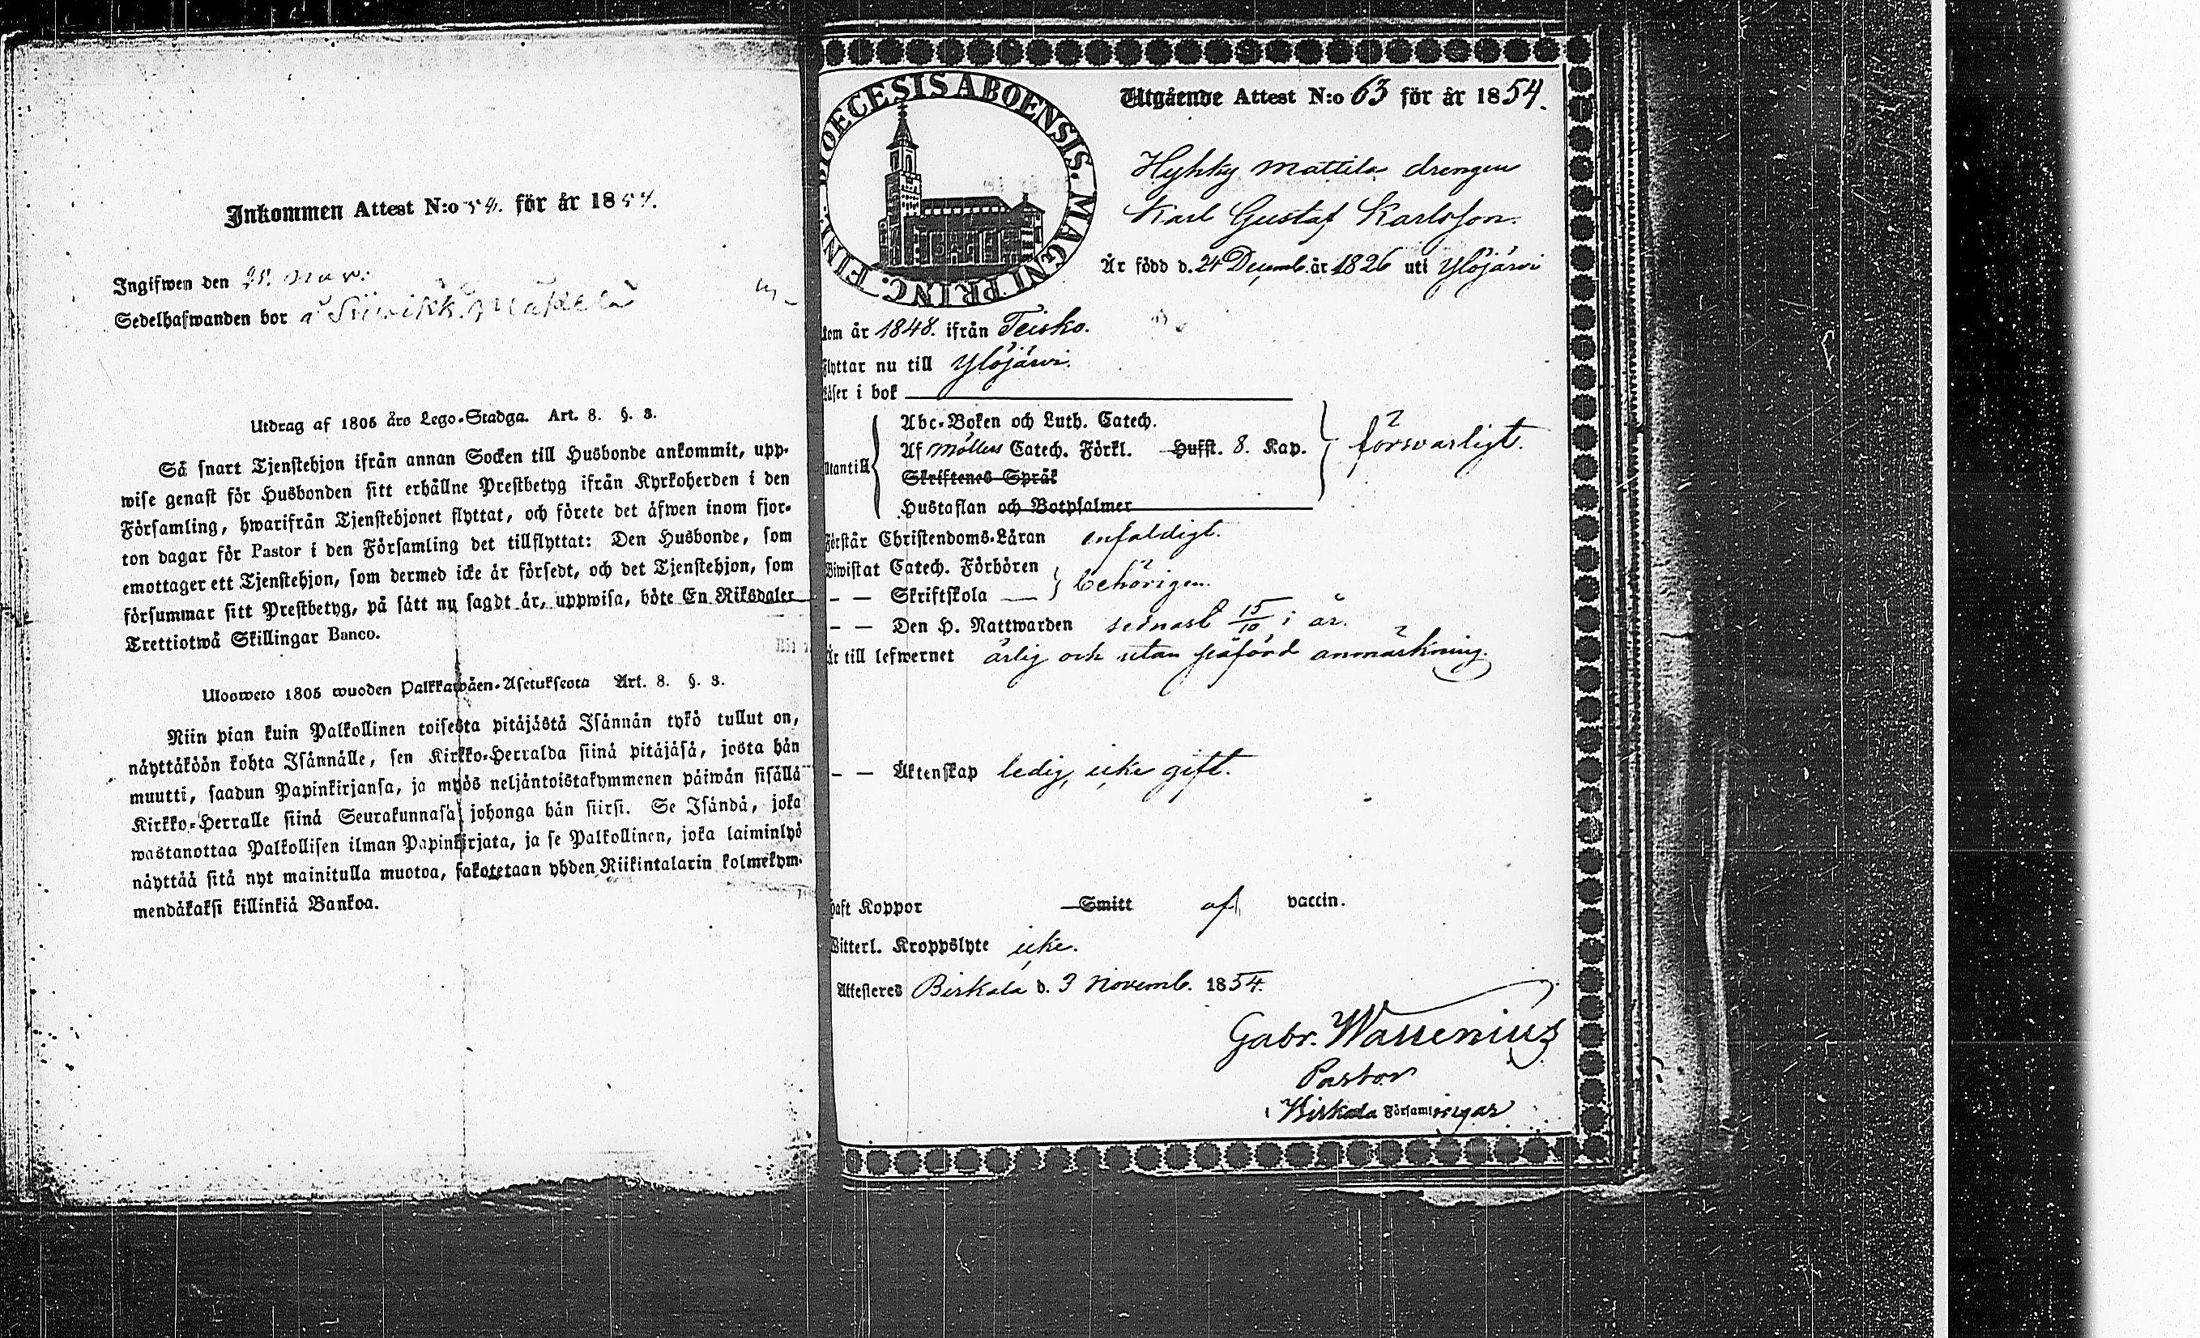 Inkommen Attest N:o 54. för år 1854.
Ingifwen den 25. nov:
Sedelhafwanden bor å Siiwikk. Mäkelä
Utdrag af 1805 års Lego-Stadga. Art. 8. §. 3.
Så snart Tjenstehjon ifrån annan Socken till Husbonde ankommit, upp-
wise genast för Husbonden sitt erhållne Prestbetyg ifrån Kyrkoherden i den
Församling, hwarifrån Tjenstehjonet flyttat, och förete det äfwen inom fjor-
ton dagar för Pastor i den Församling det tillflyttat: Den Husbonde, som
emottager ett Tjenstehjon, som dermed icke är försedt, och det Tjenstehjon, som
försummar sitt Prestbetyg, på sätt nu sagdt är, uppwisa, böte En Riksdaler
Trettiotwå Skillingar Banco.
Ulosweto 1805 wuoden Palkkawäen-Asetuksesta Art. 8. §. 3.
Niin pian kuin Palkollinen toisesta pitäjästä Isännän tykö tullut on,
näyttäköön kohta Isännälle, sen Kirkko-Herralda siinä pitäjäsä, josta hän
muutti, saadun Papinkirjansa, ja myös neljäntoistakymmenen päiwän sisällä
Kirkko-Herralle siinä Seurakunnasa johonga hän siirsi. Se Isändä, joka
wastanottaa Palkollisen ilman Papinkirjata, ja se Palkollinen, joka laiminlyö
näyttää sitä nyt mainitulla muotoa, sakotetaan yhden Riikintalarin kolmekym-
mendäkaksi killinkiä Bankoa.
DIOECESIS ABOENSIS. MAGNI PRINC. FINL.
Utgående Attest N:o 63 för år 1854.
Hyhky Mattila drengen
Karl Gustaf Karlsson.
Är född d. 24 Decemb. år 1826 uti Ylöjärwi
kom år 1848. ifrån Teisko.
Flyttar nu till Ylöjärwi.
Läser i bok
Abc-Boken och Luth. Catech.
Utantill Af Möllers Catech. Förkl. Husst. 8. Kap. försvarligt.
Skriftenes Språk
Hustaflan och Botpsalmer
Förstår Christendoms-Läran enfaldigt.
Biwistat Catech. Förhören
– – Skriftskola behörigen.
– – Den H. Nattwarden senast 15/10 i år.
Är till lefwernet ärlig och utan påförd anmärkning.
– – Äktenskap ledig, icke gift.
haft Koppor Smitt af vaccin.
Witterl. Kroppslyte icke.
Attesteres Birkala d. 3 Novemb. 1854.
Gabr. Wallenius
Pastor
i Birkala Församlingar